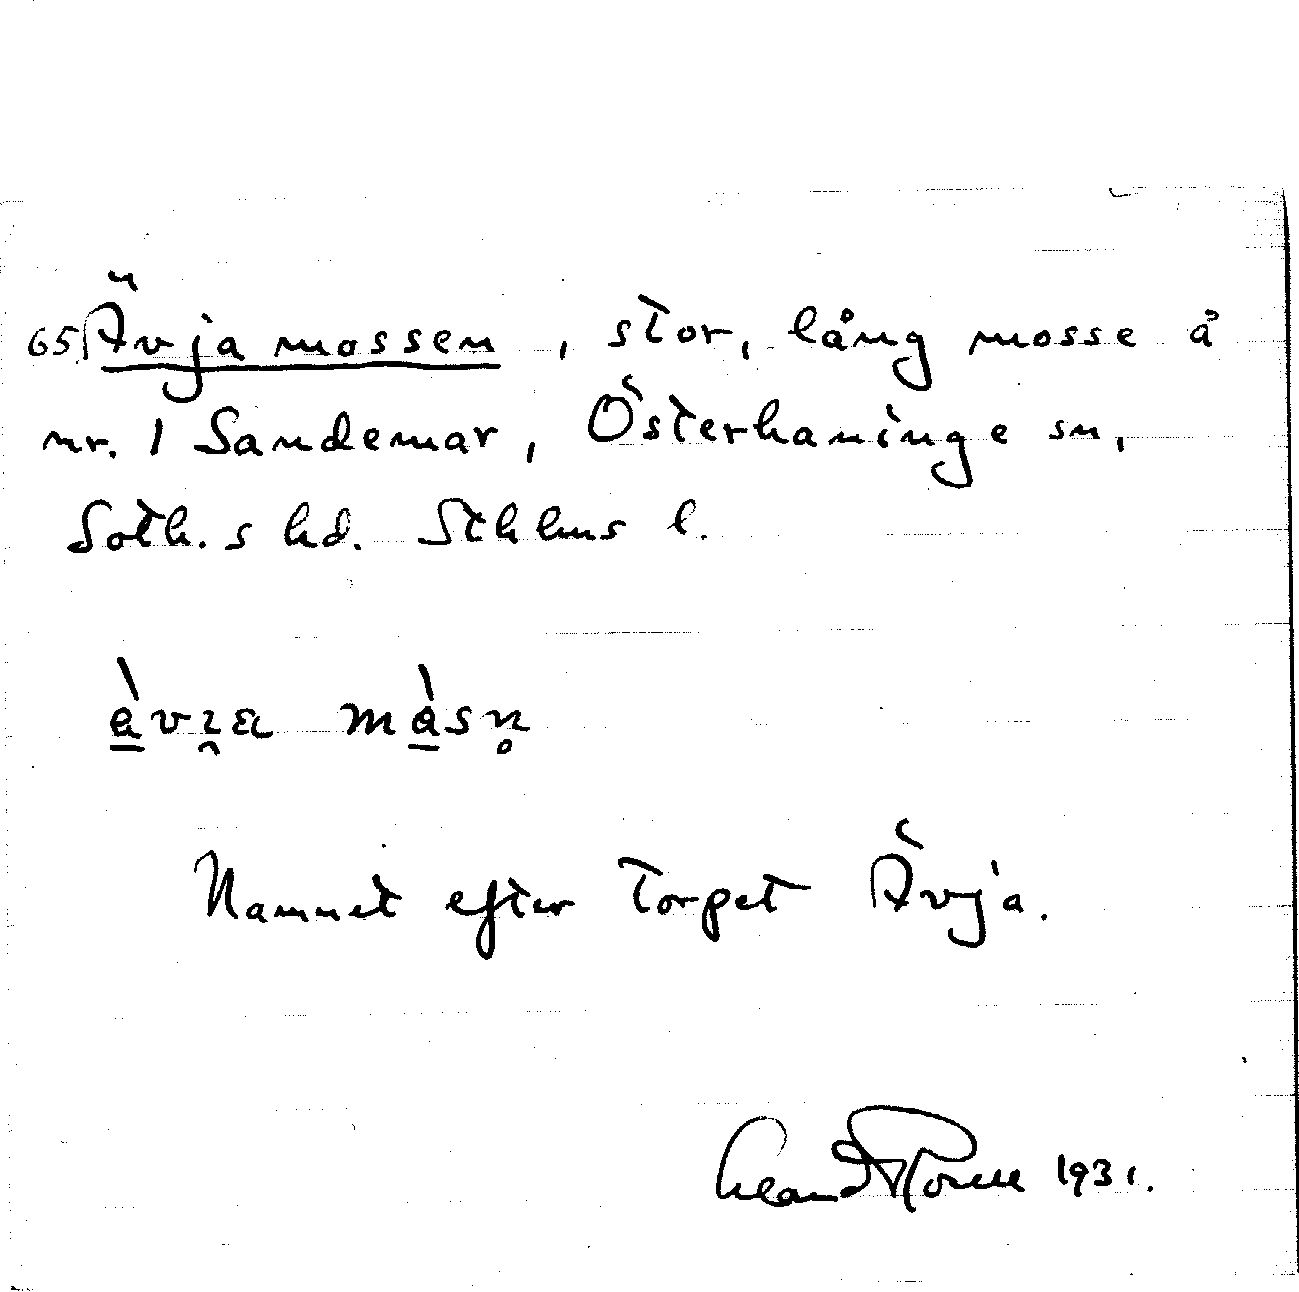 65. Ävja mossen, stor, lång mosse å
nr. 1 Sandemar, Österhaninge sn,
Soth.s hd. Sthlms l.
Namnet efter torpet Ävja.
1931.